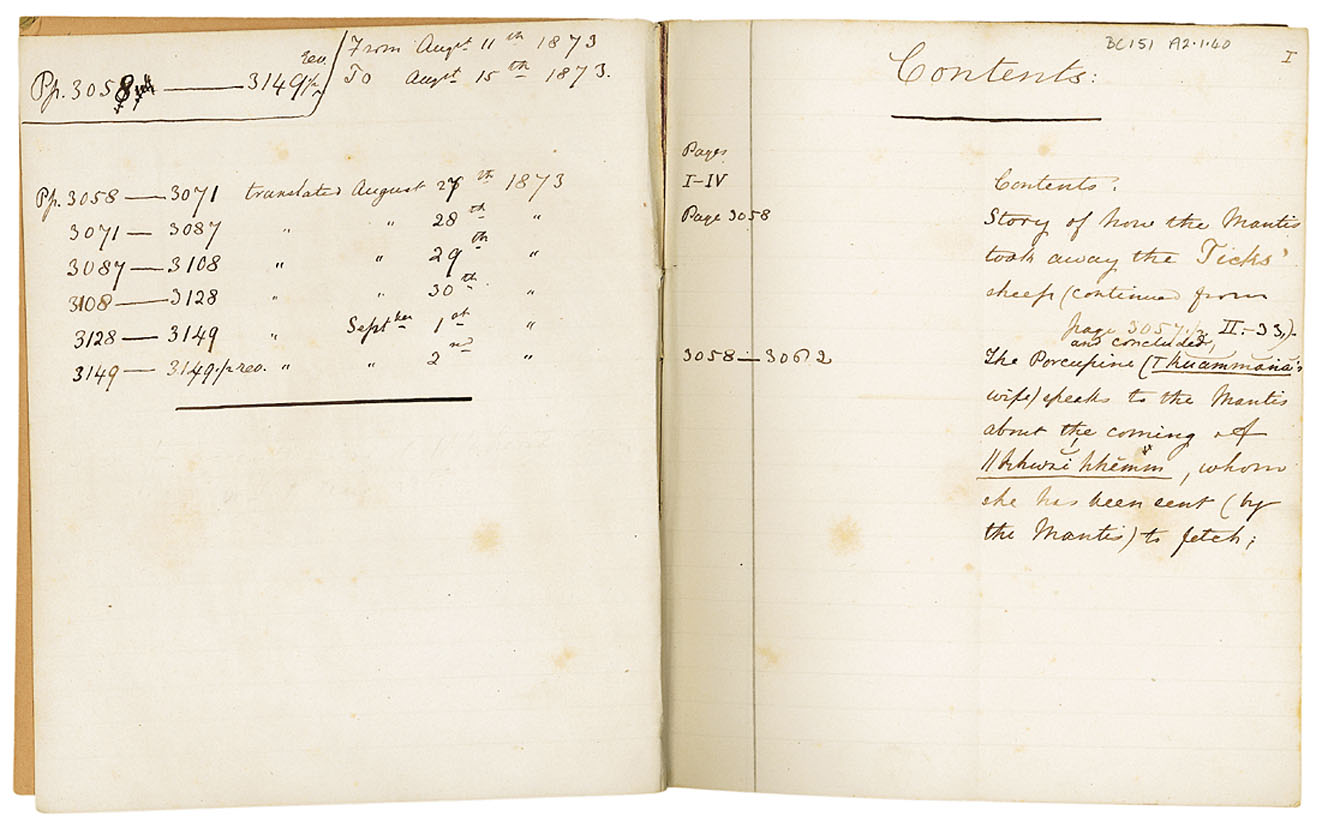 Pp. 3058 — 3149 p. rev.
From Augst 11th 1873
To Augst 15th 1873.
Pp. 3058 — 3071 translated August 27th 1873
3071 — 3087 " " 28th "
3087 — 3108 " " 29th "
3108 — 3128 " " 30th "
3128 — 3149 " Septber 1st "
3149 — 3149. p. rev. " " 2nd "
BC151 A2.1.40
I
Contents:
Pages
I-IV Contents.
Page 3058 Story of how the Mantis
took away the Ticks'
sheep (continued from
page 3057. II.-33,).
and concluded,
3058 — 3062 The Porcupine (ǀkuammana's
wife) speaks to the Mantis
about the coming of
ǁkhwai hhemm, whom
she has been sent (by
the Mantis) to fetch;